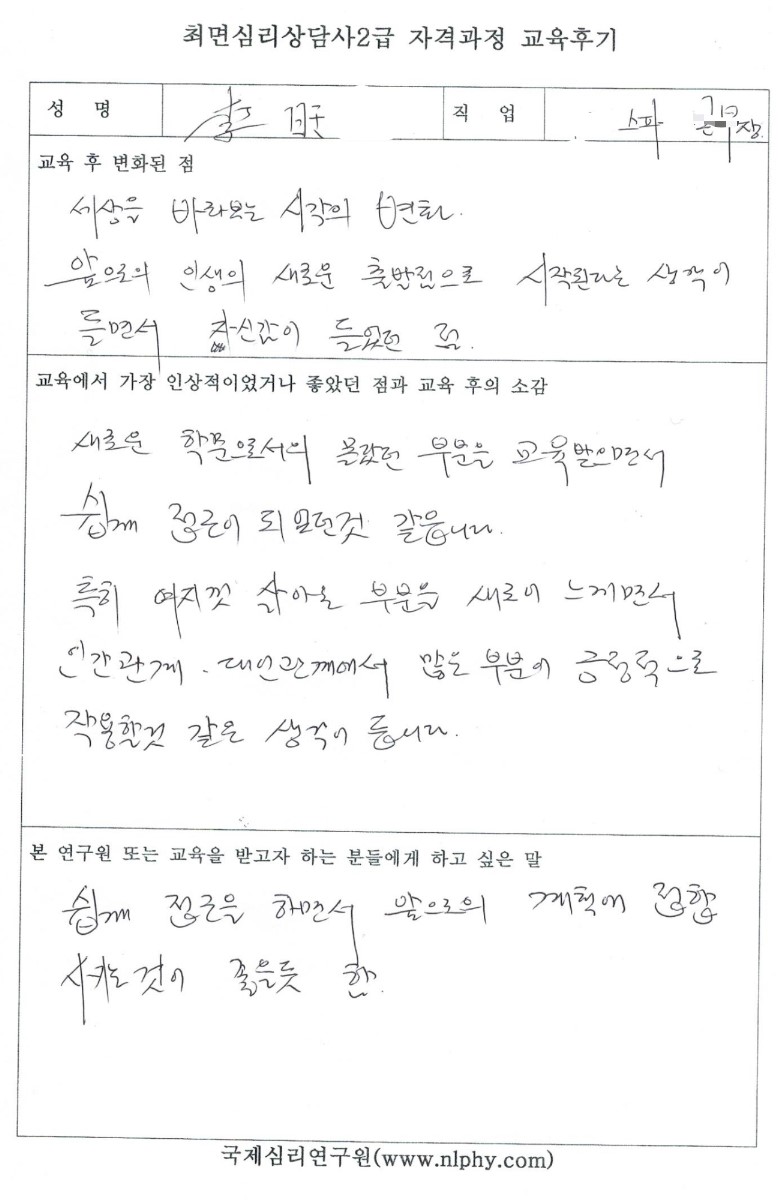 최면심리상담사2급 자격과정 교육후기
성 명 李 직 업 스파
교육 후 변화된 점
세상을 바라보는 시각의 변화.
앞으로의 인생의 새로운 출발점으로 시작된다는 생각이
들면서 자신감이 들었던 점.
교육에서 가장 인상적이었거나 좋았던 점과 교육 후의 소감
새로운 학문으로서의 몰랐던 부분을 교육받으면서
쉽게 접근이 되었던것 같읍니다.
특히 여지껏 살아온 부분을 새로이 느끼면서
인간관계. 대인관계에서 많은 부분이 긍정적으로
작용할것 같은 생각이 듭니다.
본 연구원 또는 교육을 받고자 하는 분들에게 하고 싶은 말
쉽게 접근을 하면서 앞으로의 계획에 접합
시키는것이 좋을듯 함.
국제심리연구원(www.nlphy.com)